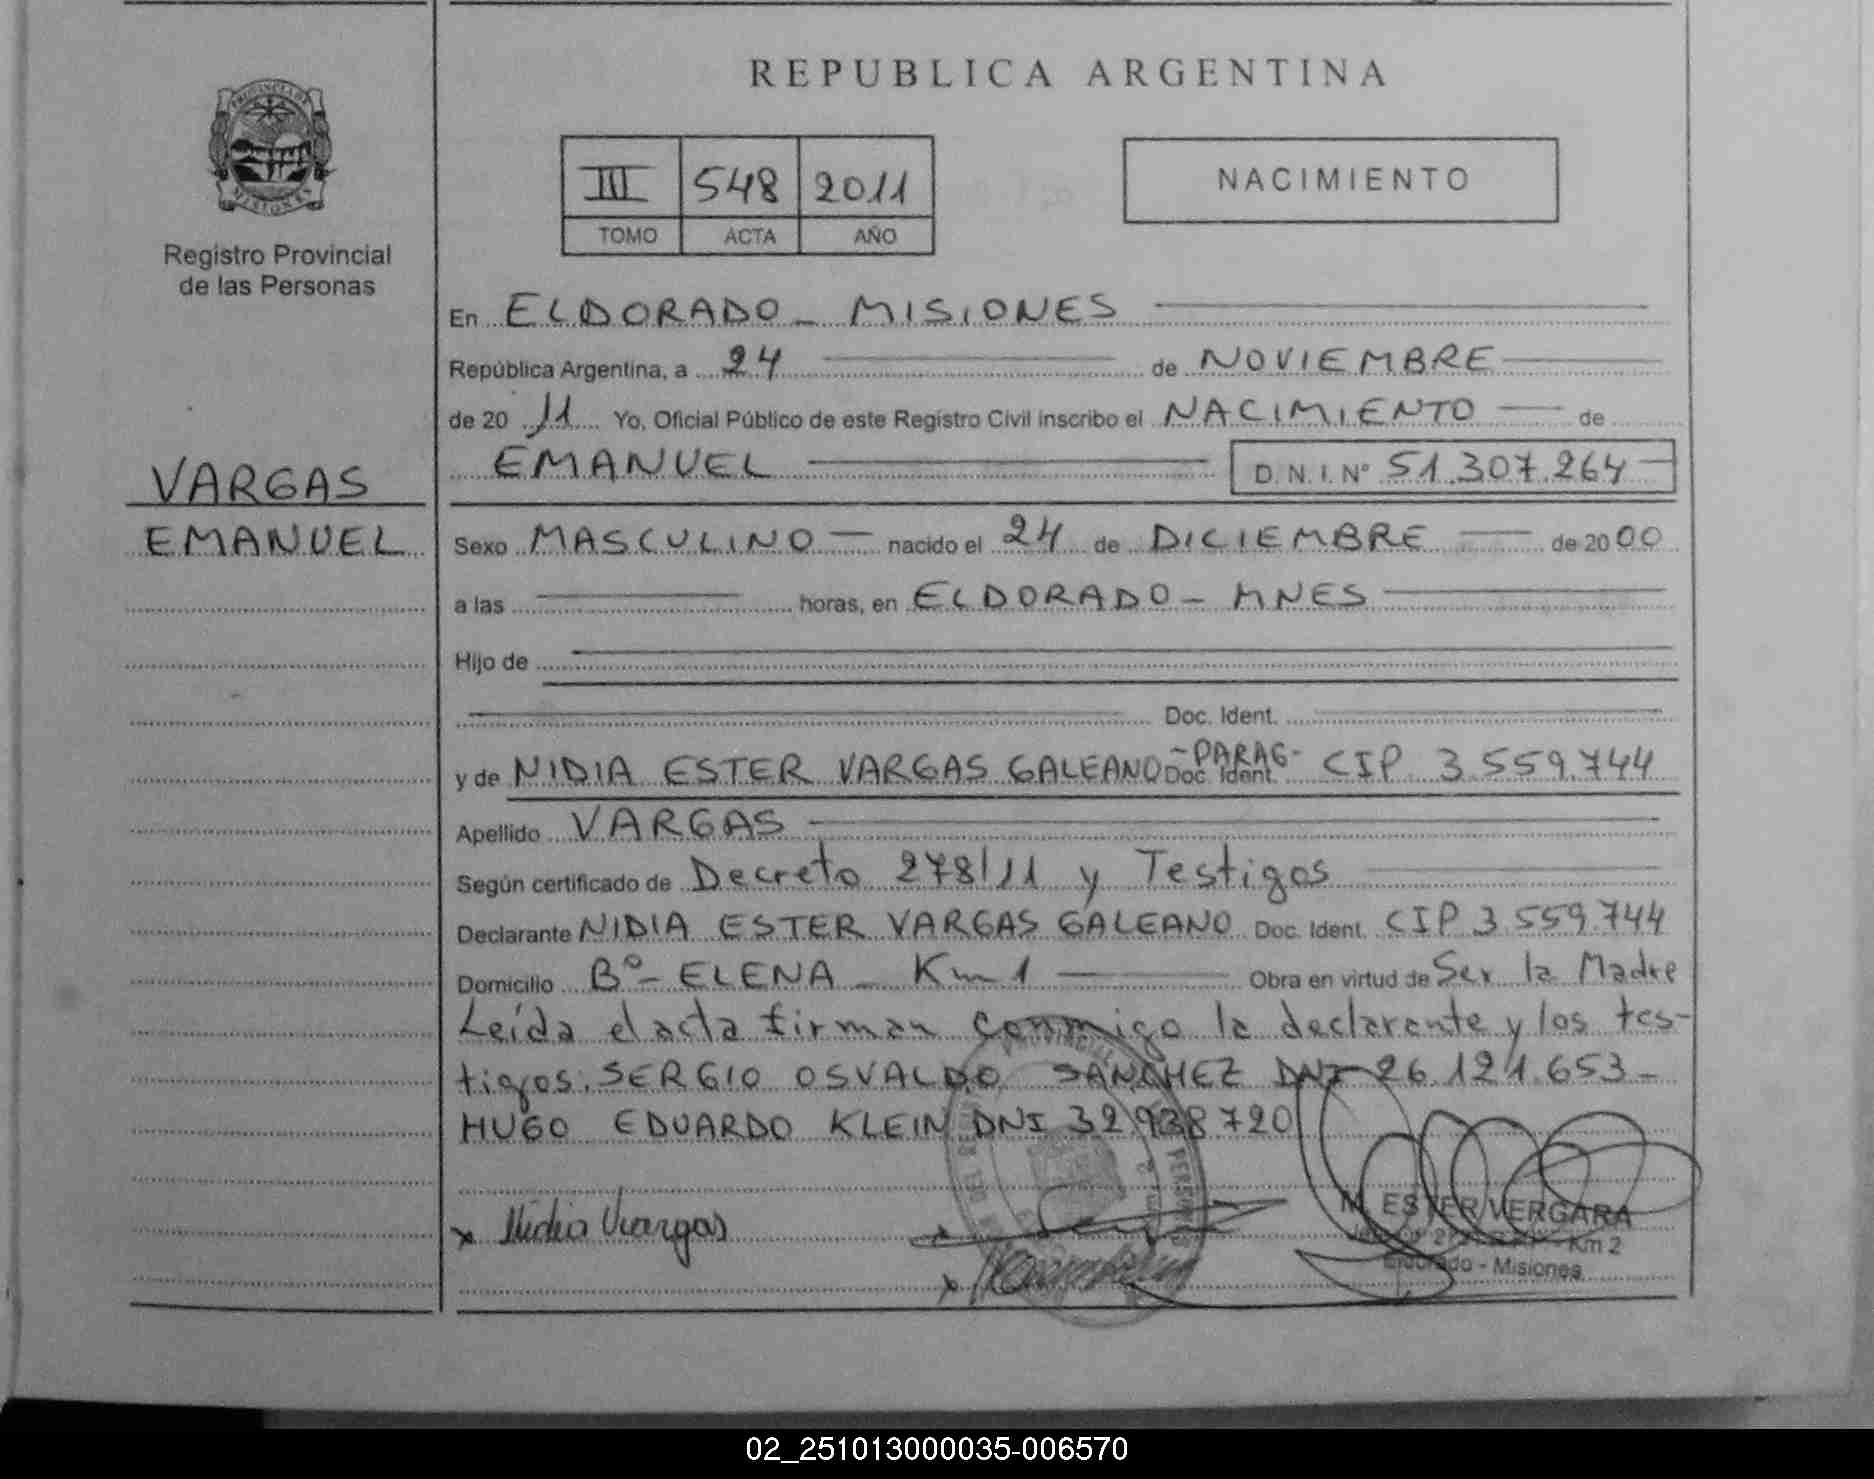 REPUBLICA ARGENTINA
PROVINCIA DE
MISIONES
Registro Provincial
de las Personas
III 548 2011
TOMO ACTA AÑO
NACIMIENTO
En ELDORADO - MISIONES
República Argentina, a 24 de NOVIEMBRE
de 2011 Yo, Oficial Público de este Registro Civil inscribo el NACIMIENTO de
EMANUEL D.N.I. Nº 51.307.264
VARGAS
EMANUEL
Sexo MASCULINO nacido el 24 de DICIEMBRE de 2000
a las horas, en ELDORADO - MNES
Hijo de
Doc. Ident.
y de NIDIA ESTER VARGAS GALEANO -PARAG- Doc. Ident. CIP 3.559.744
Apellido VARGAS
Según certificado de Decreto 278/11 y Testigos
Declarante NIDIA ESTER VARGAS GALEANO Doc. Ident. CIP 3.559.744
Domicilio Bº- ELENA - Km 1 Obra en virtud de Ser la Madre
Leída el acta firman conmigo la declarante y los tes-
tigos: SERGIO OSVALDO SANCHEZ DNI 26.121.653-
HUGO EDUARDO KLEIN DNI 32.938.720
x Nidia Vargas x
x
M. ESTER VERGARA
Km 2
Eldorado - Misiones
02_251013000035-006570